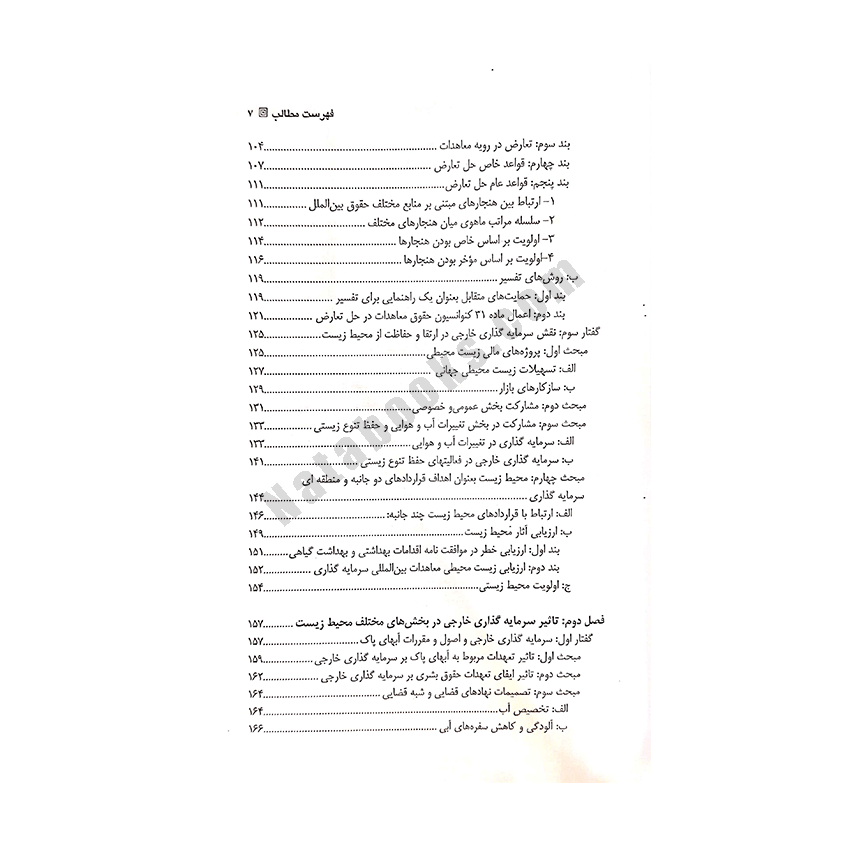 فهرست مطالب ۷
بند سوم: تعارض در رویه معاهدات ........ ۱۰۴
بند چهارم: قواعد خاص حل تعارض ........ ۱۰۷
بند پنجم: قواعد عام حل تعارض ........ ۱۱۱
۱- ارتباط بین هنجارهای مبتنی بر منابع مختلف حقوق بین‌الملل ........ ۱۱۱
۲- سلسله مراتب ماهوی میان هنجارهای مختلف ........ ۱۱۲
۳- اولویت بر اساس خاص بودن هنجارها ........ ۱۱۴
۴-اولویت بر اساس مؤخر بودن هنجارها ........ ۱۱۶
ب: روش‌های تفسیر ........ ۱۱۹
بند اول: حمایت‌های متقابل بعنوان یک راهنمایی برای تفسیر ........ ۱۱۹
بند دوم: اعمال ماده ۳۱ کنوانسیون حقوق معاهدات در حل تعارض ........ ۱۲۱
گفتار سوم: نقش سرمایه گذاری خارجی در ارتقا و حفاظت از محیط زیست ........ ۱۲۵
مبحث اول: پروژه‌های مالی زیست محیطی ........ ۱۲۵
الف: تسهیلات زیست محیطی جهانی ........ ۱۲۷
ب: سازکارهای بازار ........ ۱۲۹
مبحث دوم: مشارکت بخش عمومی‌و خصوصی ........ ۱۳۱
مبحث سوم: مشارکت در بخش تغییرات آب و هوایی و حفظ تنوع زیستی ........ ۱۳۳
الف: سرمایه گذاری در تغییرات آب و هوایی ........ ۱۳۳
ب: سرمایه گذاری خارجی در فعالیتهای حفظ تنوع زیستی ........ ۱۴۱
مبحث چهارم: محیط زیست بعنوان اهداف قراردادهای دو جانبه و منطقه ای
سرمایه گذاری ........ ۱۴۴
الف: ارتباط با قراردادهای محیط زیست چند جانبه: ........ ۱۴۶
ب: ارزیابی آثار محیط زیست ........ ۱۴۹
بند اول: ارزیابی خطر در موافقت نامه اقدامات بهداشتی و بهداشت گیاهی ........ ۱۵۱
بند دوم: ارزیابی زیست محیطی معاهدات بین‌المللی سرمایه گذاری ........ ۱۵۲
ج: اولویت محیط زیستی ........ ۱۵۴
فصل دوم: تاثیر سرمایه گذاری خارجی در بخش‌های مختلف محیط زیست ........ ۱۵۷
گفتار اول: سرمایه گذاری خارجی و اصول و مقررات آبهای پاک ........ ۱۵۷
مبحث اول: تاثیر تعهدات مربوط به آبهای پاک بر سرمایه گذاری خارجی ........ ۱۵۹
مبحث دوم: تاثیر ایفای تعهدات حقوق بشری بر سرمایه گذاری خارجی ........ ۱۶۲
مبحث سوم: تصمیمات نهادهای قضایی و شبه قضایی ........ ۱۶۴
الف: تخصیص آب ........ ۱۶۴
ب: آلودگی و کاهش سفره‌های آبی ........ ۱۶۶
Natabooks.com